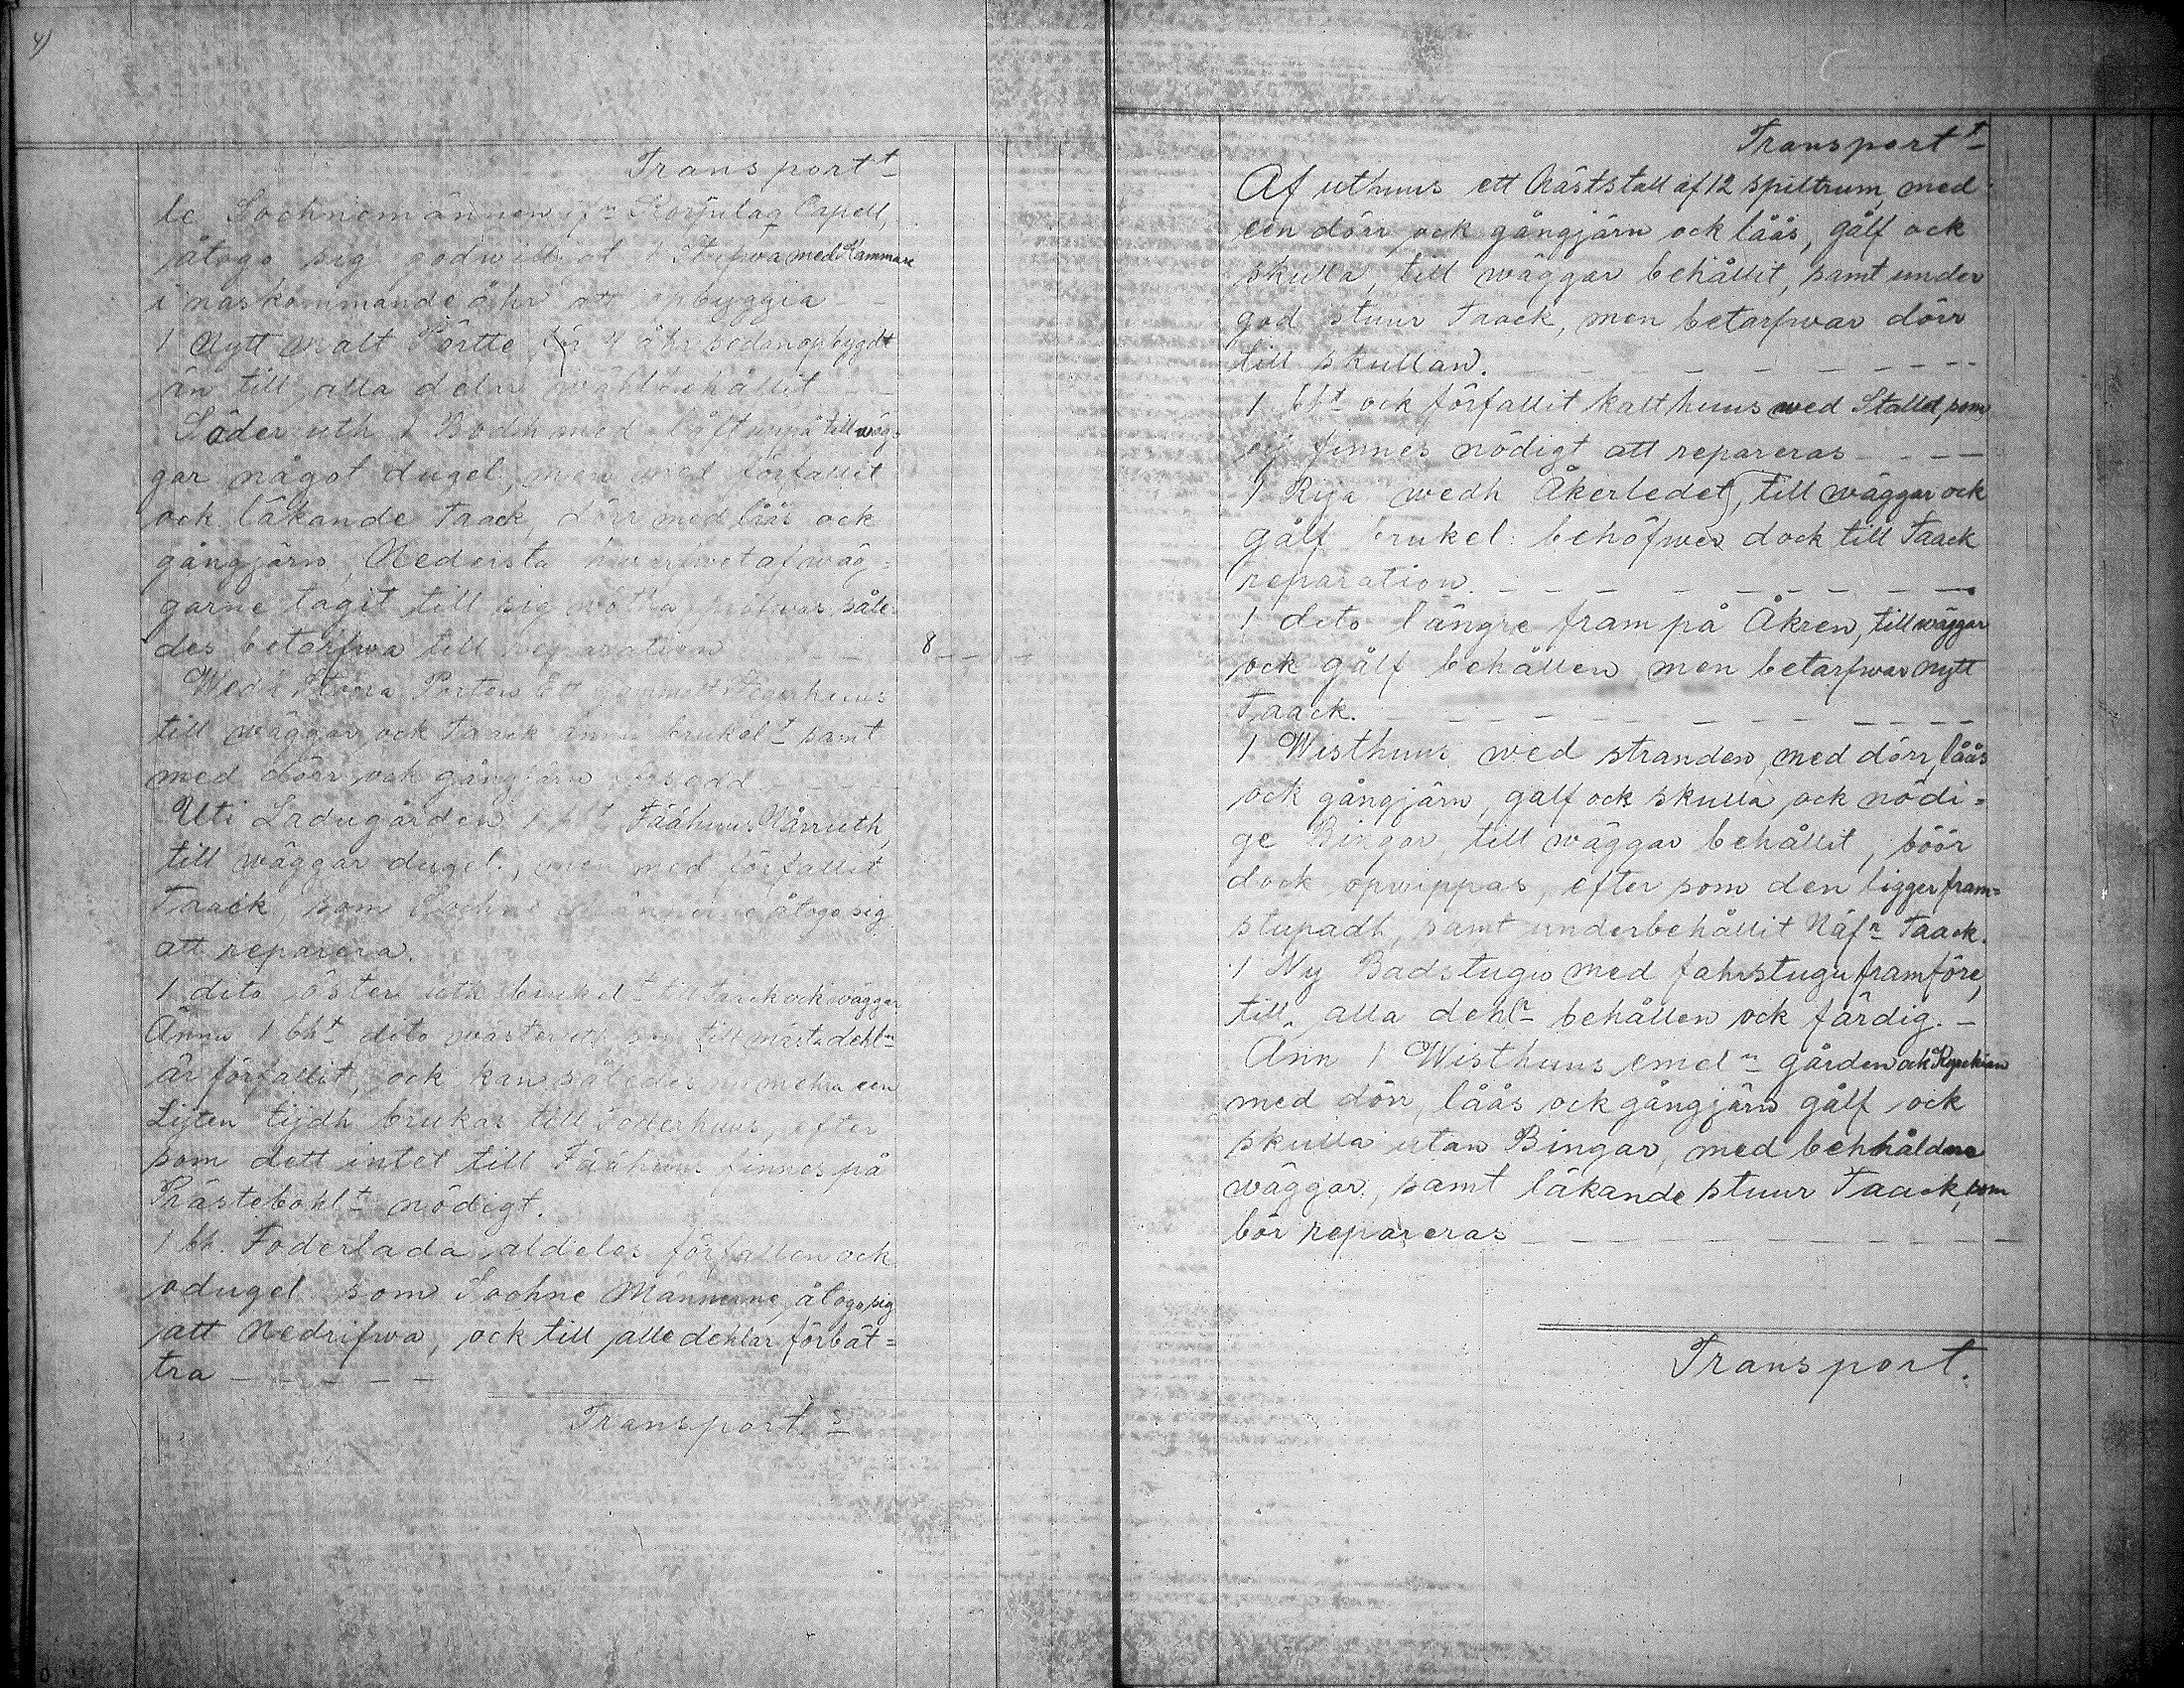 4)
Transport t
le Sochnemännen ifn Korpulaq Capell,
åtogo sig godwill. at 1 Stufwa med Kammare
i näskommande åhr att opbyggia
1 Nytt malt Pörtte för 4 åhr sedan opbygdt
än till alla delar wählbehållit
Söder uth 1 Bodh med lofft uppå till wäg-
gar något dugel. men med förfallit
ock läkande Taack, dörr med låås ock
gångjärn, Nedersta hwarfwet af wäg-
garne tagit till sig rötha, såle-
des betarfwa till reparation 8 - -
Wedh Stora Porten Ett gammalt huus
till wäggar ock Taack ännu brukelt samt
med dörr ock gångjärn försedd
Uti Ladugården 1 Fäähuus Nårruth,
till wäggar dugel., men med förfallit
Taack, som Sochne Männerne åtogo sig
att reparera.
1 dito öster uth brukelt till Taack ock wäggar
Ännu 1 bht dito wäster uth som till mästa dehln
är förfallit, ock kan således numehra een
Lijten tijdh brukas till Foderhuus, efter
som dett intet till Fäähuus finnes på
Prästebohlt nödigt.
1 bh. Foderlada aldeles förfallen ock
odugel. som Sochne Männerne åtogo sig
att Nedrifwa, ock till alle dehlar förbät=
tra - - - - -
Transport
Transport t
Af uthuus ett Näststall af 12 spiltrum, med
een dörr ock gångjärn ock låås, gålf ock
skulla, till wäggar behållit, samt under
god stuur Taack, men betarfwar dörr
till skullan. - - - - - - -
1 bht ock förfallit kalthuus wed Stallet, som
ej finnes nödigt att repareras - - - -
1 Rija wedh Åkerledet, till wäggar ock
gålf brukel: behöfwer dock till Taack
reparation. - - - - - - - -
1 dito längre fram på Åkren, till wäggar
ock gålf behållen men betarfwar nytt
Taack. - - - - - - - - - -
1 Wisthuus wed stranden, med dörr, låås
ock gångjärn, galf ock skulla ock nödi=
ge Bingar, till wäggar behållit, böör
dock opwippas, efter som den ligger fram=
stupadh, samt underbehållit Näfn Taack.
1 Ny Badstugu med fahrstugu framföre,
till alla dehlr behållen ock färdig. -
Änn 1 Wisthuus emeln gården ock Kyrckian
med dörr, låås ock gångjärn gålf ock
skulla utan Bingar, med behhåldne
wäggar, samt läkande stuur Taack, som
bör repareras - - - - - - - -
Transport.